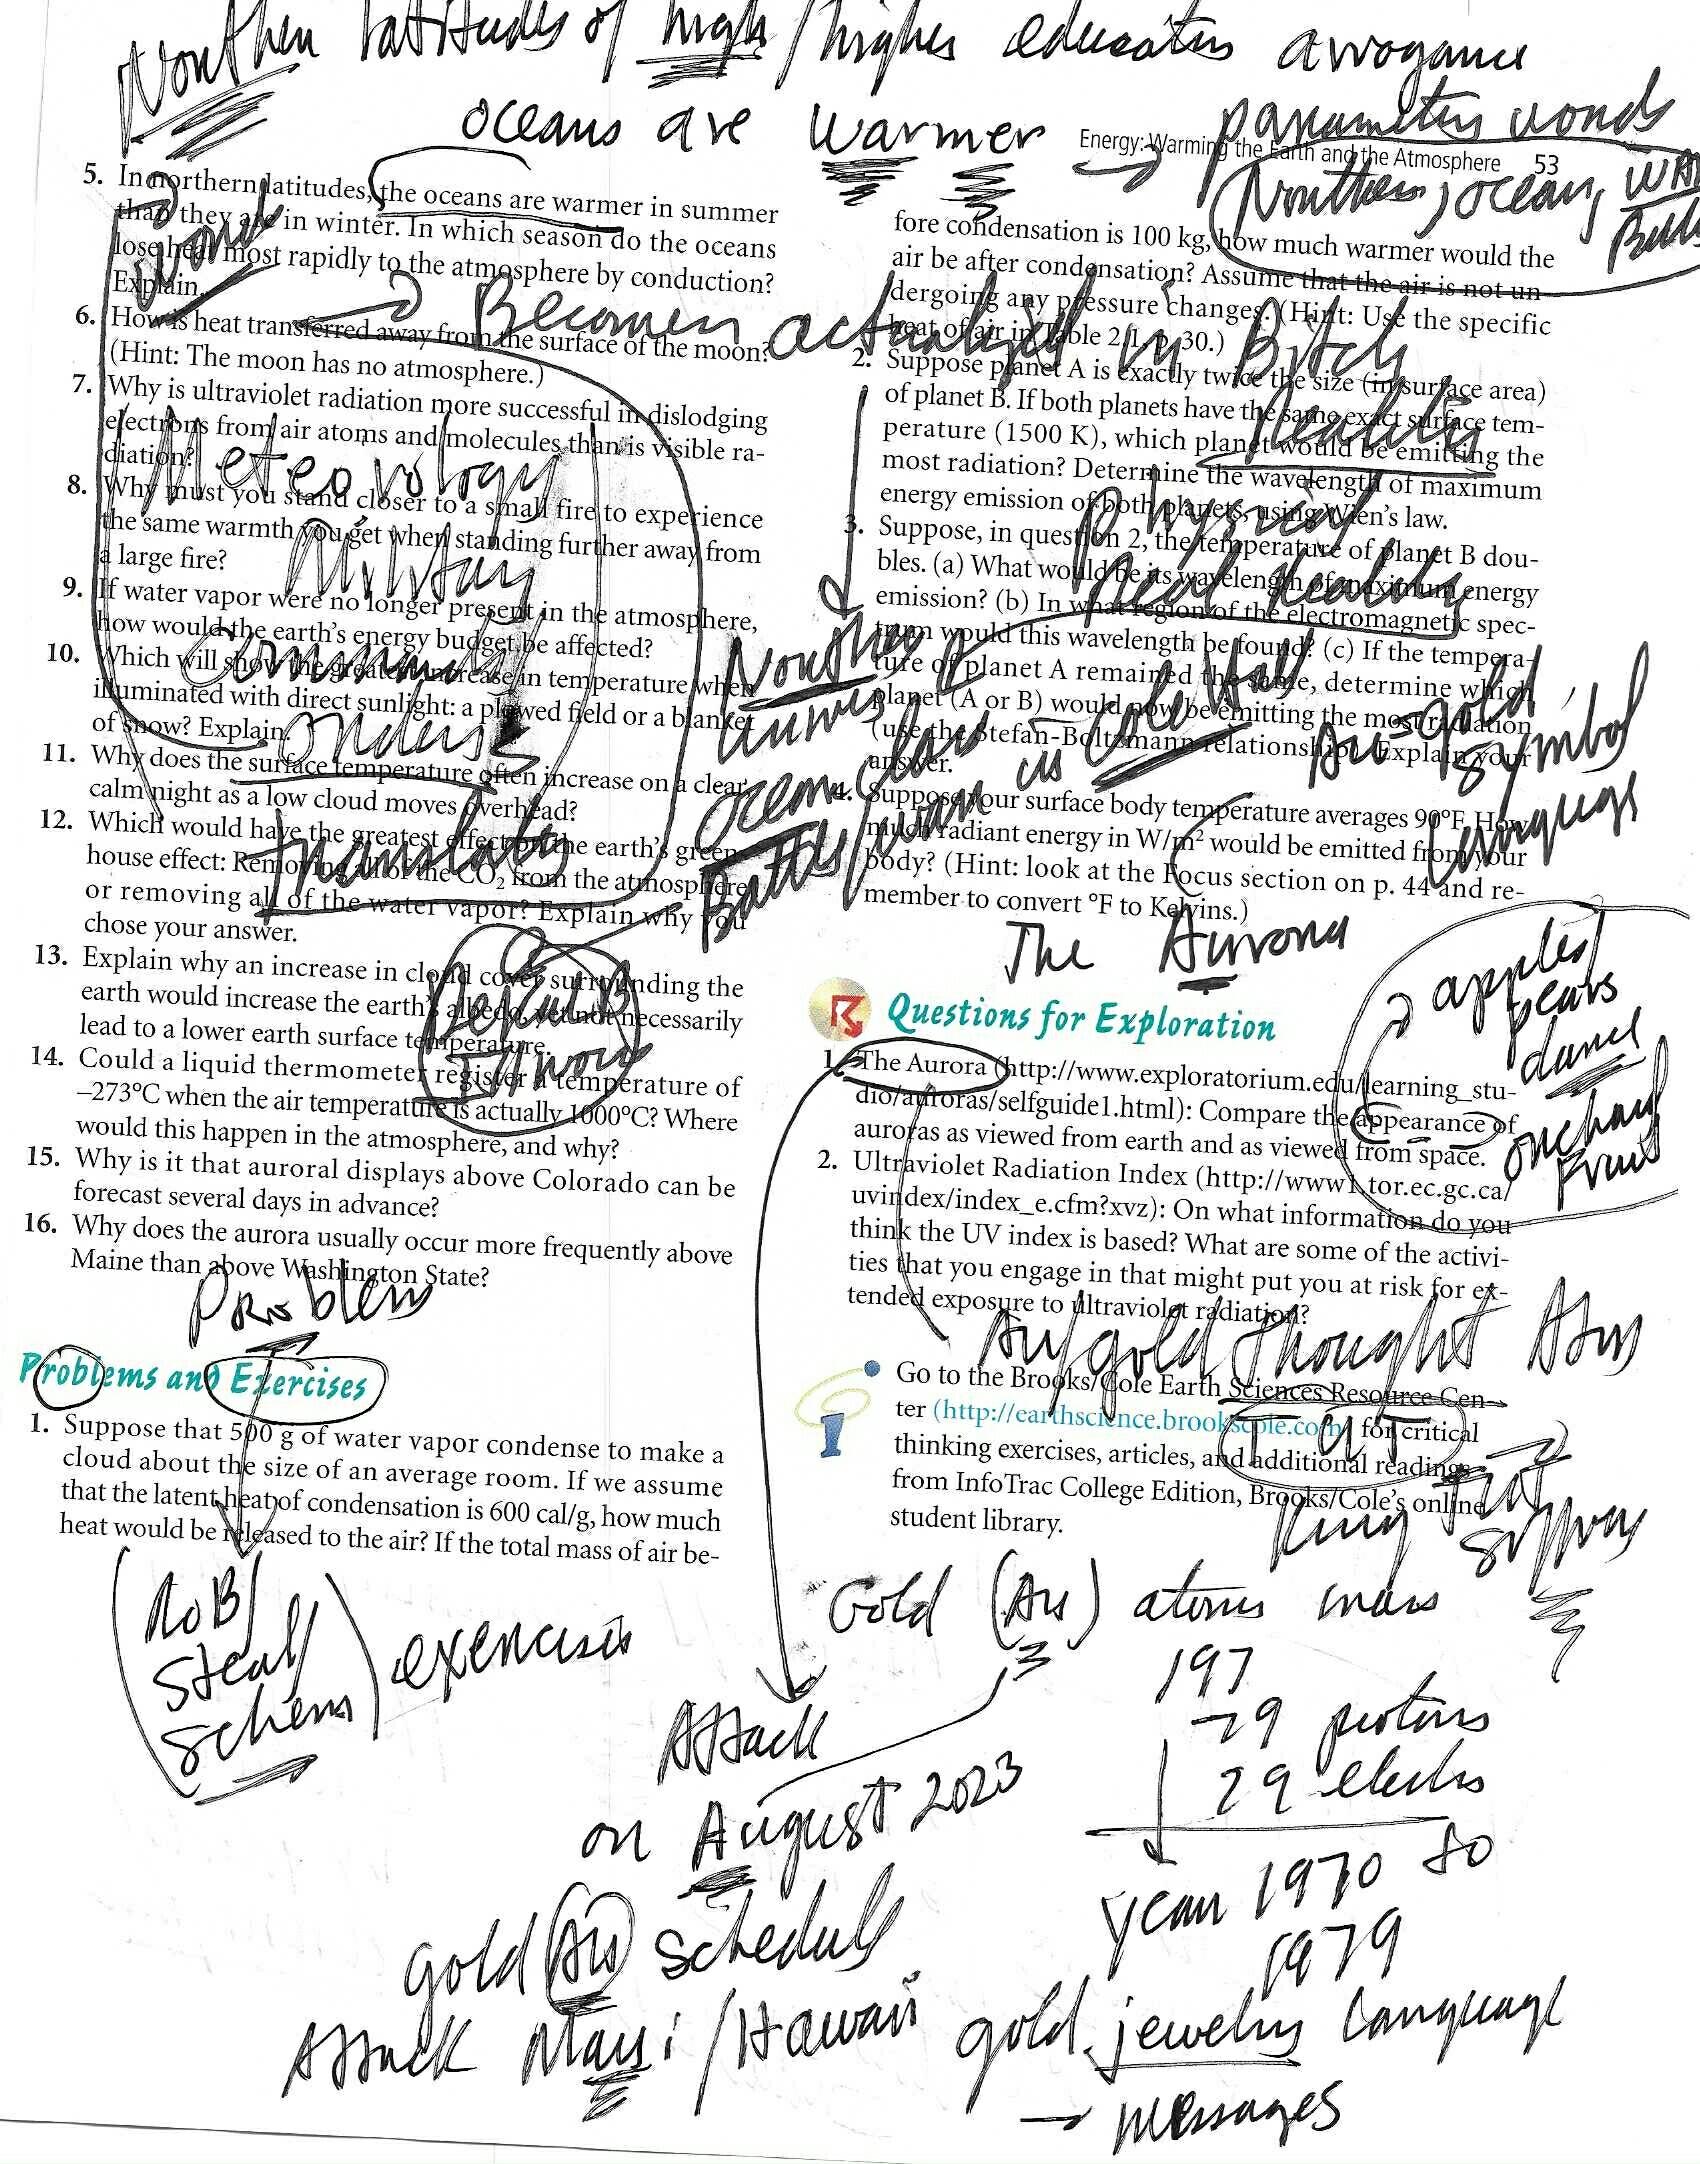 Northern latitudes of high/higher education arrogance
oceans are warmer → parameters words
Energy: Warming the Earth and the Atmosphere 53
Northern, ocean,
5. In northern latitudes, the oceans are warmer in summer
than they are in winter. In which season do the oceans
lose heat most rapidly to the atmosphere by conduction?
Explain.
Becomes actualized in
6. How is heat transferred away from the surface of the moon?
(Hint: The moon has no atmosphere.)
7. Why is ultraviolet radiation more successful in dislodging
electrons from air atoms and molecules than is visible ra-
diation?
Meteorology
8. Why must you stand closer to a small fire to experience
the same warmth you get when standing further away from
a large fire?
Military
9. If water vapor were no longer present in the atmosphere,
how would the earth's energy budget be affected?
Command
10. Which will show the greatest increase in temperature when
illuminated with direct sunlight: a plowed field or a blanket
of snow? Explain.
orders
11. Why does the surface temperature often increase on a clear,
calm night as a low cloud moves overhead?
12. Which would have the greatest effect on the earth's green-
house effect: Removing all of the CO₂ from the atmosphere
or removing all of the water vapor? Explain why you
chose your answer.
translates
13. Explain why an increase in cloud cover surrounding the
earth would increase the earth's albedo, yet not necessarily
lead to a lower earth surface temperature.
14. Could a liquid thermometer register a temperature of
–273°C when the air temperature is actually 1000°C? Where
would this happen in the atmosphere, and why?
15. Why is it that auroral displays above Colorado can be
forecast several days in advance?
16. Why does the aurora usually occur more frequently above
Maine than above Washington State?
Problem
Problems and Exercises
1. Suppose that 500 g of water vapor condense to make a
cloud about the size of an average room. If we assume
that the latent heat of condensation is 600 cal/g, how much
heat would be released to the air? If the total mass of air be-
RoB/
steal/
schem
exercises
fore condensation is 100 kg, how much warmer would the
air be after condensation? Assume that the air is not un-
dergoing any pressure changes. (Hint: Use the specific
heat of air in Table 2.1, p. 30.)
2. Suppose planet A is exactly twice the size (in surface area)
of planet B. If both planets have the same exact surface tem-
perature (1500 K), which planet would be emitting the
most radiation? Determine the wavelength of maximum
energy emission of both planets, using Wien's law.
Reality
physical
Real Reality
3. Suppose, in question 2, the temperature of planet B dou-
bles. (a) What would be its wavelength of maximum energy
emission? (b) In what region of the electromagnetic spec-
trum would this wavelength be found? (c) If the tempera-
ture of planet A remained the same, determine which
planet (A or B) would now be emitting the most radiation
(use the Stefan-Boltzmann relationship). Explain your
answer.
Northern
ocean
Battles/war is cole War
Au = gold
symbol
Language
4. Suppose your surface body temperature averages 90°F. How
much radiant energy in W/m² would be emitted from your
body? (Hint: look at the Focus section on p. 44 and re-
member to convert °F to Kelvins.)
The Aurora
apples/
pears
orchard
Fruit
Questions for Exploration
1. The Aurora (http://www.exploratorium.edu/learning_stu-
dio/auroras/selfguide1.html): Compare the appearance of
auroras as viewed from earth and as viewed from space.
2. Ultraviolet Radiation Index (http://www1.tor.ec.gc.ca/
uvindex/index_e.cfm?xvz): On what information do you
think the UV index is based? What are some of the activi-
ties that you engage in that might put you at risk for ex-
tended exposure to ultraviolet radiation?
Au/gold thought
Go to the Brooks/Cole Earth Sciences Resource Cen-
ter (http://earthscience.brookscole.com) for critical
thinking exercises, articles, and additional readings
from InfoTrac College Edition, Brooks/Cole's online
student library.
King Tut
Gold (Au) atoms mass
197
79 protons
79 electrs
80
year 1970
1979
Attack
on August 2023
gold (Au) schedule
Attack Maui/Hawaii gold jewelry language
→ messages